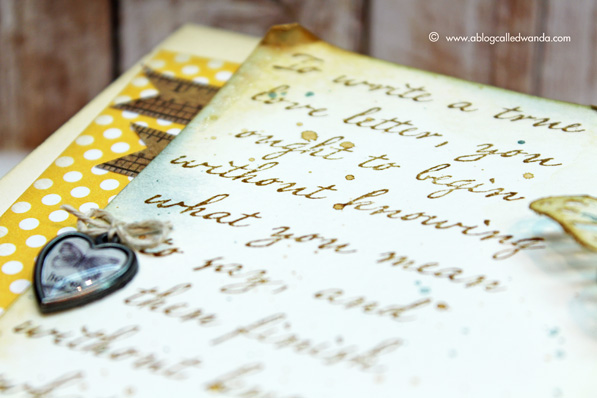 © www.ablogcalledwanda.com
To write a true
love letter, you
ought to begin
without knowing
what you mean
say, and
then finish
without